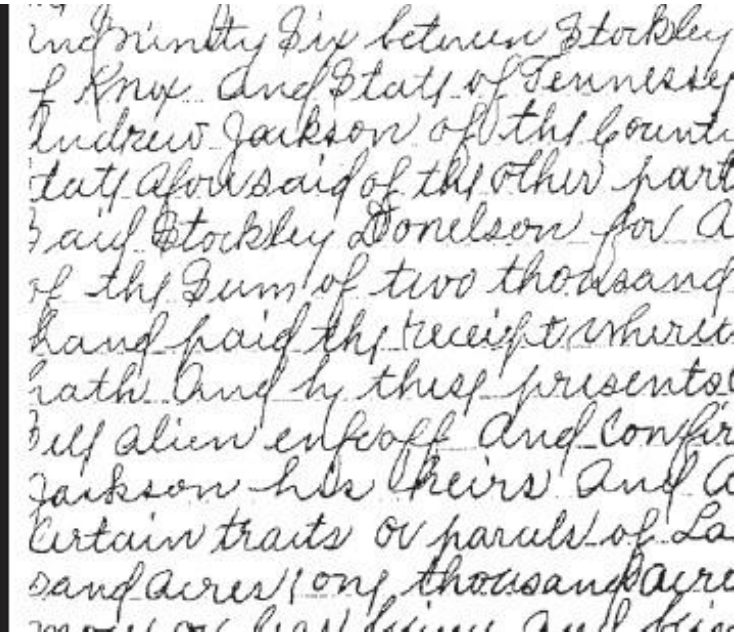 and ninty Six between Stockley
of Knox and State of Tennessey
Andrew Jackson of the Count
tate aforesaid of the other part
Said Stockley Donelson for a
of the Sum of two thousand
hand paid the receipt where
hath and by these presents
Sell alien enfeoff and Confir
Jackson his heirs and a
Certain tracts or parcels of La
sand acres one thousand acre
more or less being and